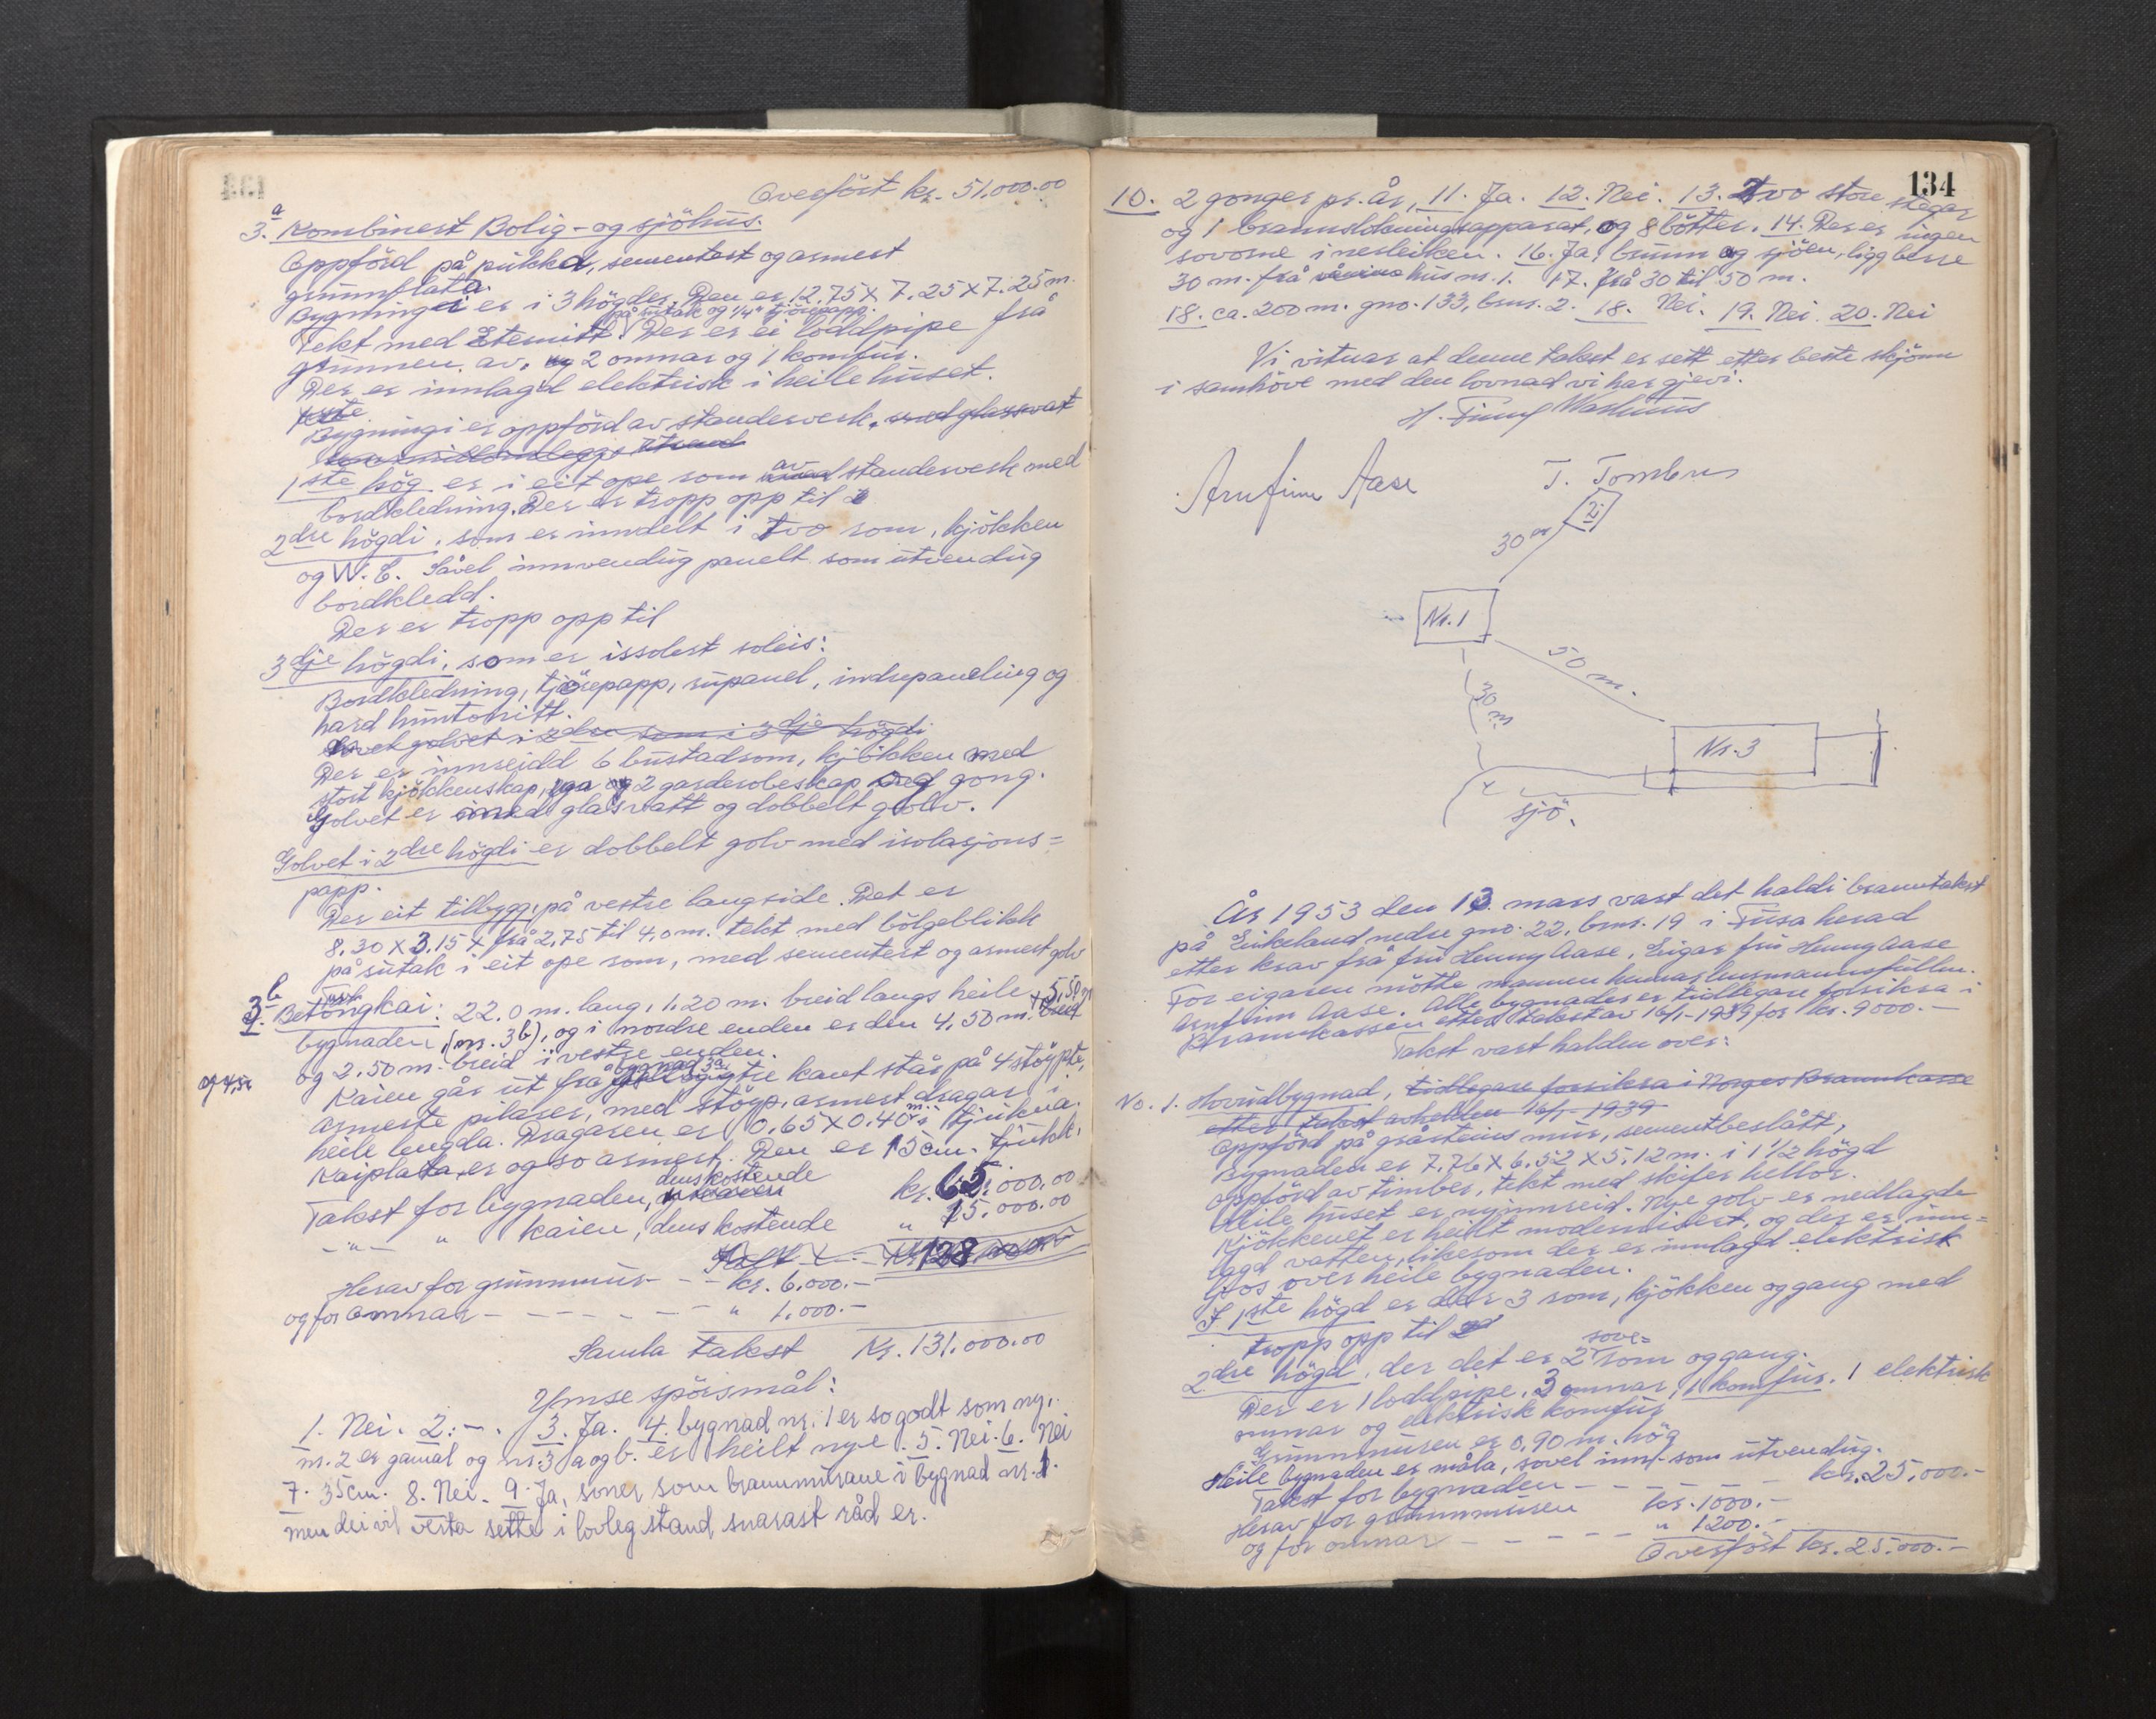 Overfört kr. 51.000.00
3.a Kombinert Bolig- og sjöhus.
Oppförd på pukka, sementert og armert
grunnflata.
Bygningi er i 3 högder. Den er 12.75 X 7.25 X 7.25 m.
på sutak og 1/4" tjörepapp.
Tekt med Eternitt. Der er ei loddpipe frå
grunnen av, og 2 omnar og 1 komfur.
Der er innlagd elektrisk i heile huset.
1ste
Bygningi er oppförd av standerverk, med glassvat
1ste hög er i eit ope rom av standerverk med
bordkledning. Der er tropp opp til
2dre högdi, som er inndelt i tvo rom, kjökken
og W.C. Såvel innvendug panelt som utvendug
bordkledd.
Der er tropp opp til
3dje högdi, som er issolert soleis:
Bordkledning, tjörepapp, rupanel, indrepaneling og
hard huntonitt.
golvet i 2dre rom i 3dje högdi
Der er innreidd 6 bustadrom, kjökken med
stort kjökkenskap, og 2 garderobeskap og gong.
Golvet er med glasvatt og dobbelt golv.
Golvet i 2dre högdi er dobbelt golv med isolasjons=
papp.
Der eit tilbygg på vestre langside. Det er
8.30 X 3.15 X frå 2,75 til 4,0 m. tekt med bölgeblikk
på sutak i eit ope rom, med sementert og armert golv
3.b Betongkai: 22.0 m. lang, 1.20 m. breid langs heile
bygnaden (nr. 3b), og i nordre enden er den 4,50 m. + 5,50 m
og 2.50 m. breid i vestre enden.
Kaien går ut frå bygnad 3a ytre kant står på 4 stöypte,
armeste pilarer, med stöyp. armert dragar i
heile lengda. Dragaren er 0.65 X 0.40 m. i tjukna.
Kaiplata er og so armert. Den er 15 cm. tjukk.
Takst for bygnaden, dens kostende kr. 65.000.00
-"- " kaien, dens kostende " 15.000.00
Herav for grunnmur - - kr. 6.000.-
og for omnar - - - - - - " 1.000.-
Samla takst Kr. 131.000.00
Ymse spörsmål:
1. Nei. 2. -. 3. Ja. 4. bygnad nr. 1 er so godt som ny,
nr. 2 er gamal og nr. 3 a og b. er heilt nye. 5. Nei. 6. Nei
7. 35 cm. 8. Nei. 9. Ja, soner som brannmurane i bygnad nr. 1.
men dei vil verta sette i lovleg stand snarast råd er.
134
10. 2 gonger pr. år, 11. Ja. 12. Nei. 13. Tvo store stegar
og 1 brannslokningsapparat, og 8 bötter. 14. Der er ingen
sovorne i nerleiken. 16. Ja, brunn og sjöen, ligg berre
30 m. frå hus nr. 1. 17. frå 30 til 50 m.
18. ca. 200 m. gno. 133, bnr. 2. 18. Nei. 19. Nei. 20. Nei
Vi vitnar at denne takst er sett etter beste skjönn
i samhöve med den lovnad vi har gjevi.
Arnfinn Aase T. Tombre
2
30 m
Nr. 1
50 m.
30 m
Nr. 3
sjö.
År 1953 den 13. mars vart det haldi branntakst
på Eikeland nedre gno. 22, bnr. 19 i Fusa herad
etter krav frå fru Henny Aase. Eigar fru Henny Aase
For eigaren mötte mannen hennar lensmannsfullm.
Arnfinn Aase. Alle bygnader er tidlegare forsikra i
Brannkassen etter takst av 16/1-1939 for kr. 9000.-
Takst vart halden over:
No. 1. Hovudbygnad, tidlegare forsikra i Norges Brannkasse
etter takst avhalden 16/1-1939
Oppförd på gråsteins mur, sementbeslått,
Bygnaden er 7.76 X 6.52 X 5.12 m. i 1 1/2 högd
oppförd av timber, tekt med skifer hellor.
Heile huset er nyinnreid. Nye golv er nedlagde
Kjökkenet er heilt modernisert, og der er inn=
lagd vatten, likesom der er innlagd elektrisk
ljos over heile bygnaden.
I 1ste högd er der 3 rom, kjökken og gang med
tropp opp til
2dre högd, der det er 2 sove=rom og gang.
Der er 1 loddpipe, 3 omnar, 1 komfur. 1 elektrisk
omnar og elektrisk komfur
Grunnmuren er 0,90 m. hög
Heile bygnaden er måla, sovel inn- som utvendig.
Takst for bygnaden - - - - - kr. 25.000.-
Herav for grunnmuren kr. 1000.-
og for omnar - - - - " 1200.-
Overfört kr. 25.000.-